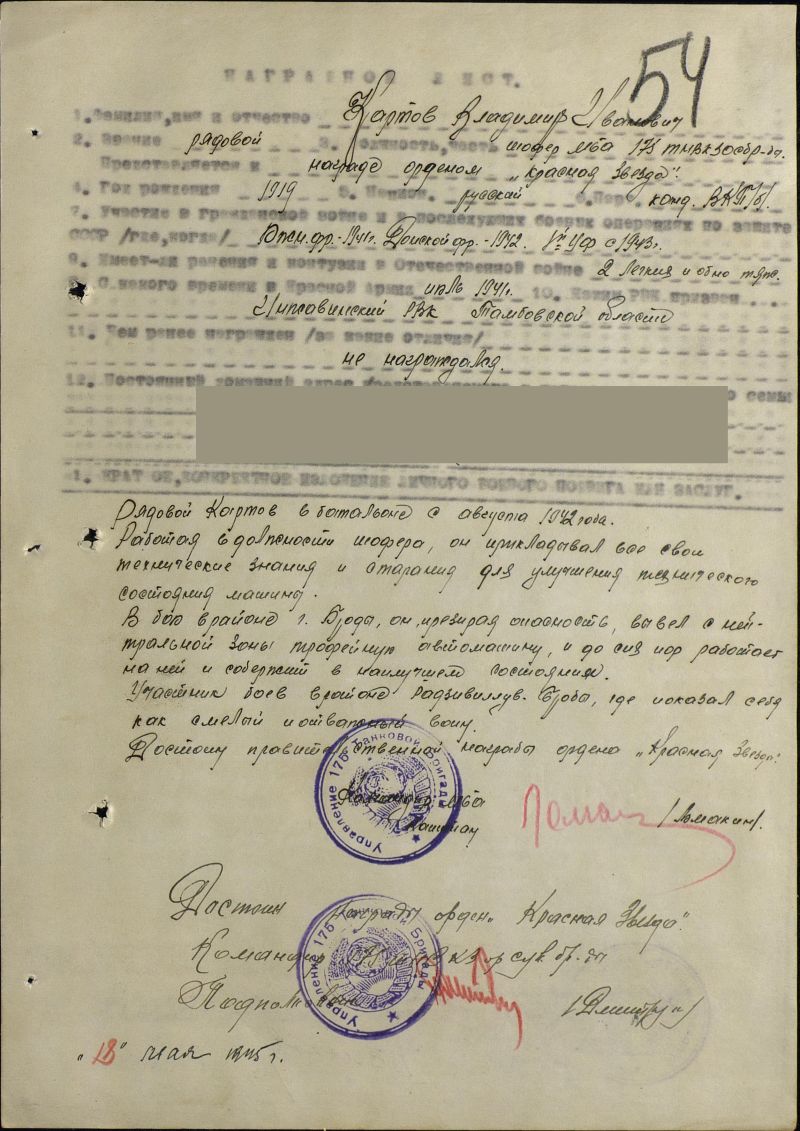 54
НАГРАДНОЙ ЛИСТ.
1. Фамилия, имя и отчество Картов Владимир Иванович
2. Звание рядовой 3. Должность, часть шофер МБА 175
Представляется к награде орденом „Красная Звезда".
4. Год рождения 1919 5. Национ. русский 6. Парт. канд. ВКП/б/.
7. Участие в гражданской войне и в последующих боевых операциях по защите
СССР /где, когда/ фр.-1941г. Донской фр.-1942. 1й УФ с 1943г.
8. Имеет-ли ранения и контузии в Отечественной войне 2 легких и одно тяж.
9. С какого времени в Красной Армии июль 1941г. 10. Каким РВК призван
РВК Тамбовской области
11. Чем ранее награжден /за какие отличия/
не награждался.
12. Постоянный домашний адрес семьи
1. КРАТКОЕ, КОНКРЕТНОЕ ИЗЛОЖЕНИЕ ЛИЧНОГО БОЕВОГО ПОДВИГА ИЛИ ЗАСЛУГ.
Рядовой Картов в батальоне с августа 1942 года.
Работая в должности шофера, он прикладывал все свои
технические знания и старания для улучшения технического
состояния машины.
В бою в районе г. Броды, он, презирая опасность, вывел с ней-
тральной зоны трофейную автомашину, и до сих пор работает
на ней и содержит в наилучшем состоянии.
Участник боев в районе Радзивиллув. Броды, где показал себя
как смелый и отважный воин.
Достоин правительственной награды ордена „Красная Звезда".
Командир МБА
Капитан /Ломакин/.
Управление 175 Танковой Бригады
Достоин награды орден „Красная Звезда".
Командир
Подполковник /Дмитр
Управление 175 Танковой Бригады
"18" мая 1945г.